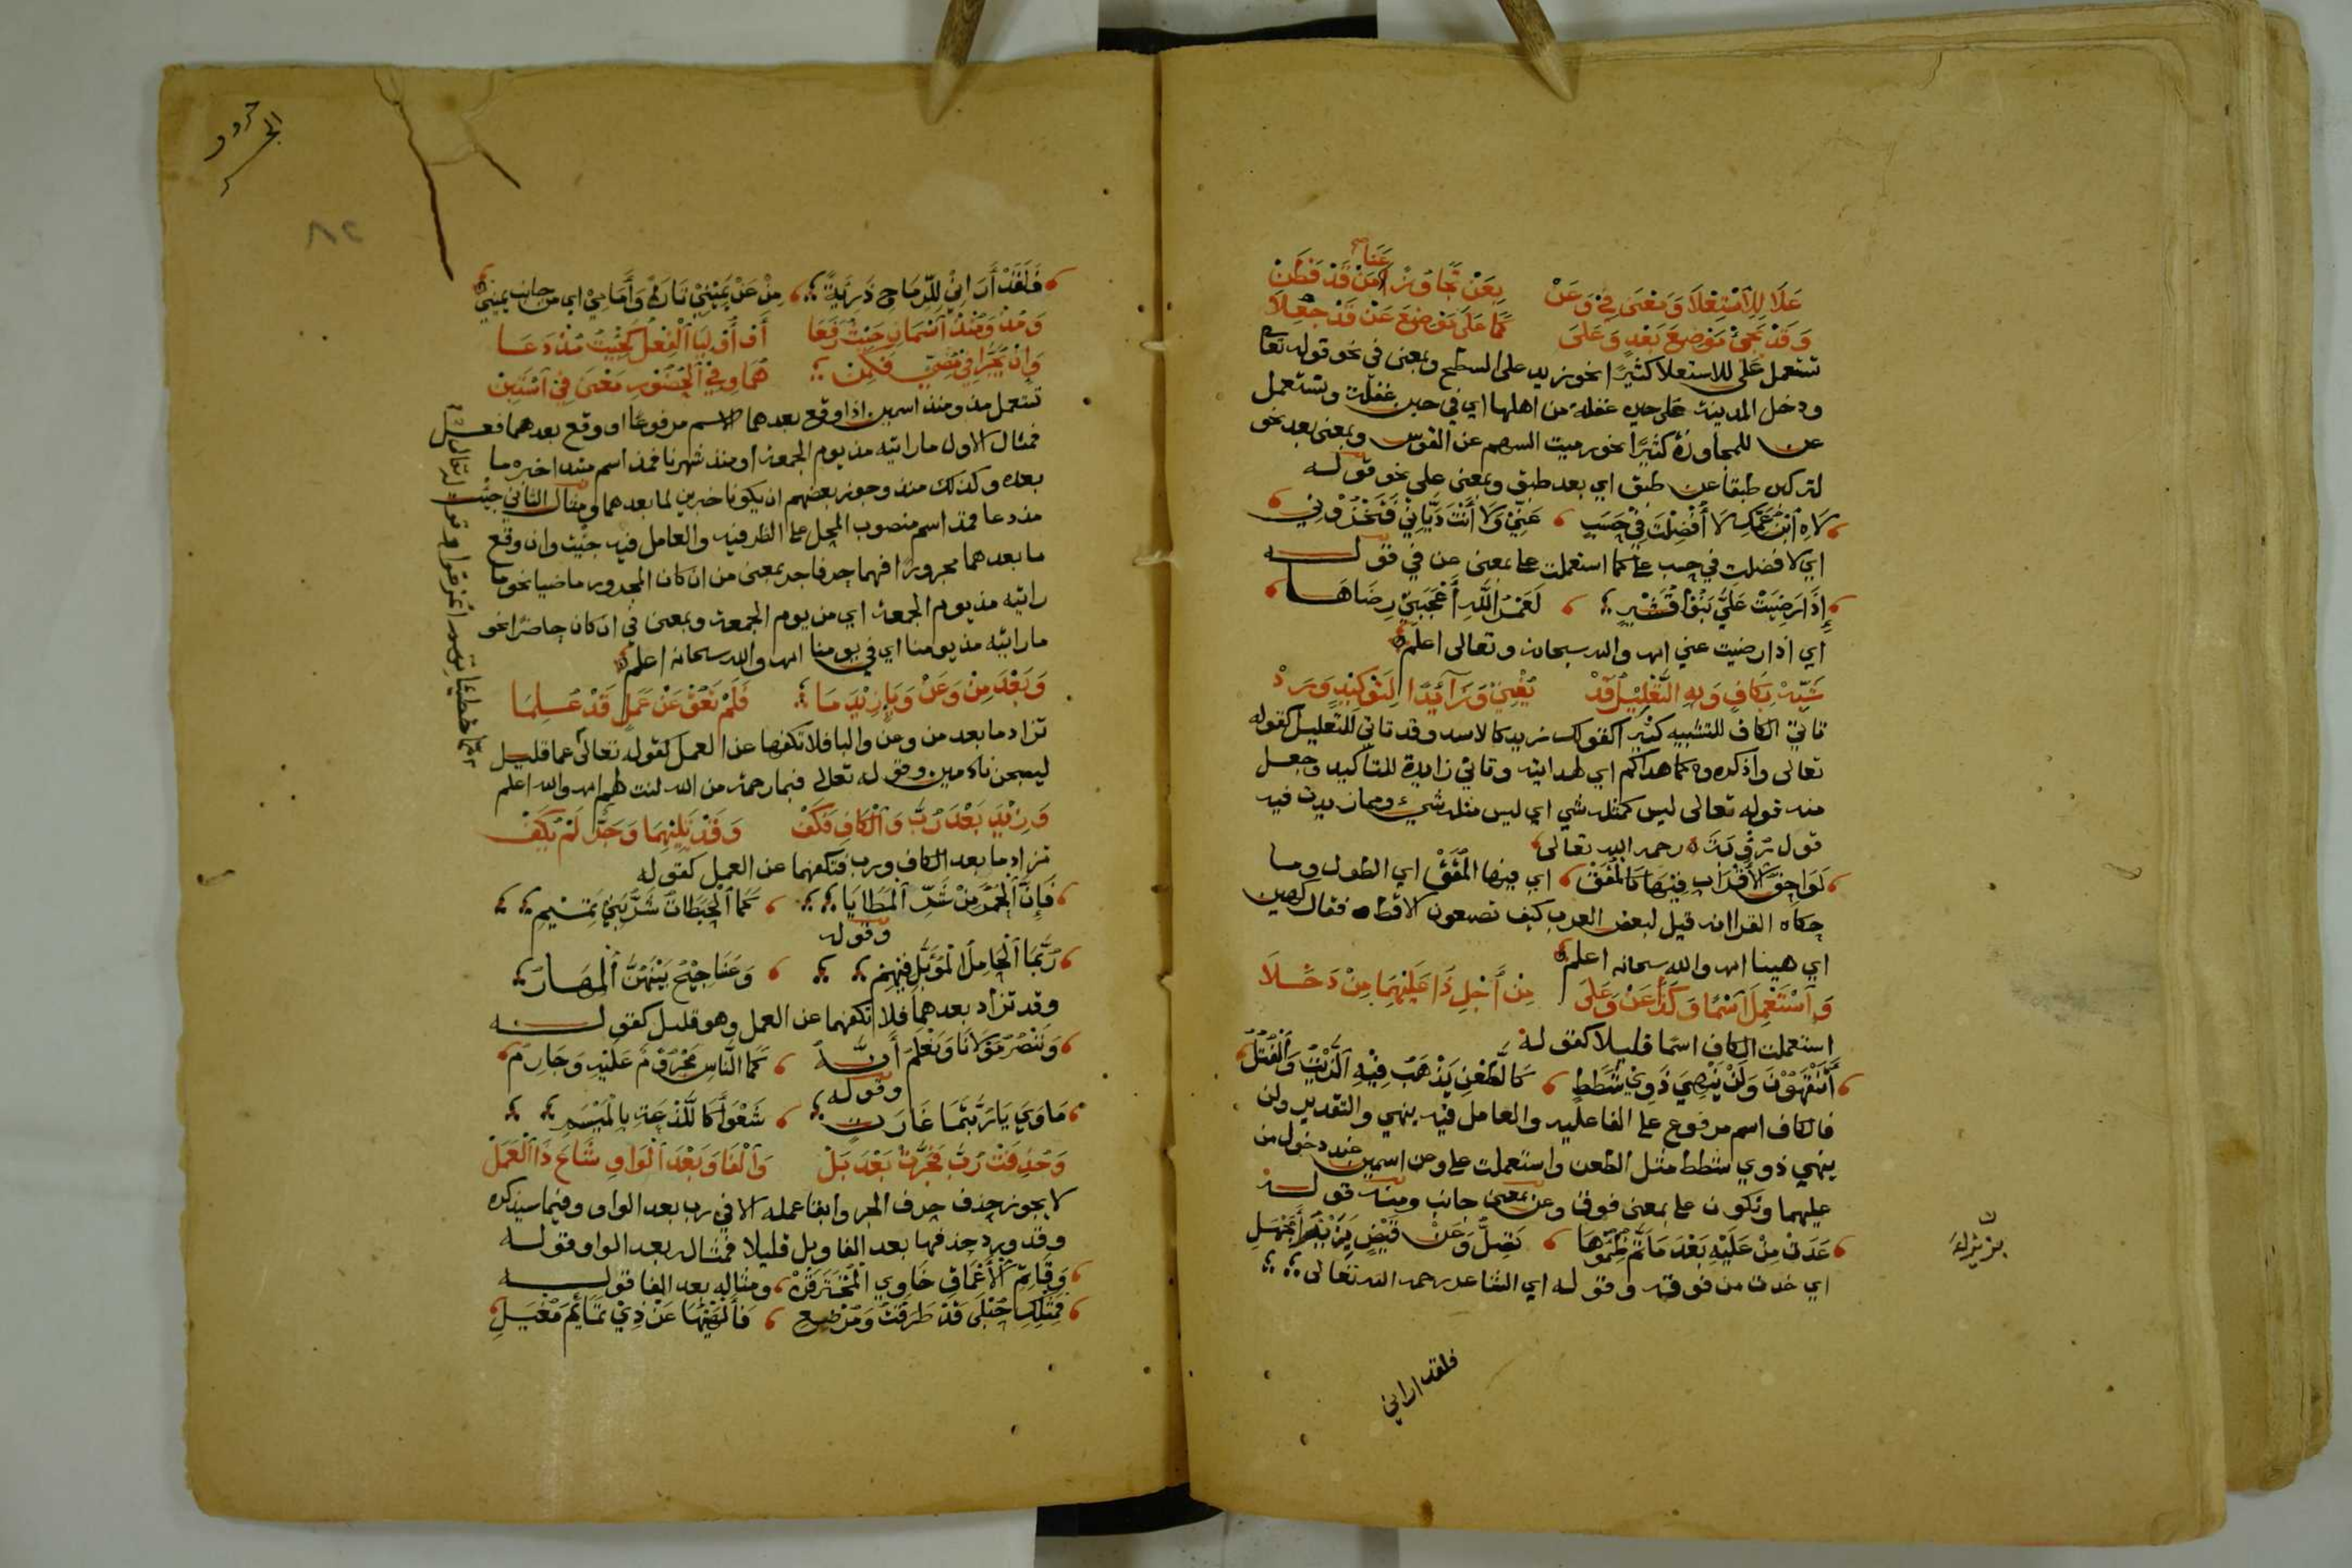 عَلَا لِلِاسْتِعْلَا وَمَعْنَى فِي وَعَنْ بِعَنْ تَجَاوُزًا عَنَا مَنْ قَدْ فَطَنْ
وَقَدْ تَجِي مَوْضِعَ بَعْدٍ وَعَلَى كَمَا عَلَى مَوْضِعَ عَنْ قَدْ جُعِلَا
تستعمل على للاستعلا كثيرًا نحو زيد على السطح وبمعنى في نحو قوله تعا
ودخل المدينة على حين غفلة من اهلها اي في حين غفلة وتستعمل
عن للمجاوزة كثيرًا نحو رميت السهم عن القوس وبمعنى بعد نحو
لتركبن طبقا عن طبق اي بعد طبق وبمعنى على نحو قوله
لَاهِ ابْنُ عَمِّكَ لَا أَفْضَلْتَ فِي حَسَبٍ عَنِّي وَلَا أَنْتَ دَيَّانِي فَتَخْزُونِي
اي لا فضلت في حسب علي كما استعملت على بمعنى عن في قوله
إِذَا رَضِيَتْ عَلَيَّ بَنُو قُشَيْرٍ لَعَمْرُ اللَّهِ أَعْجَبَنِي رِضَاهَا
اي اذا رضيت عني اهـ والله سبحانه وتعالى اعلم
شَبِّهْ بِكَافٍ وَبِهِ التَّعْلِيلُ قَدْ يُعْنَى وَزَائِدًا لِتَوْكِيدٍ وَرَدْ
تاتي الكاف للتشبيه كثيرا كقولك زيد كالاسد وقد تاتي للتعليل كقوله
تعالى واذكروه كما هداكم اي لهدايته وتاتي زايدة للتاكيد وجعل
منه قوله تعالى ليس كمثله شي اي ليس مثله شيء ومما زيدت فيه
قول رؤبة رحمه الله تعالى
لَوَاحِقُ الْأَقْرَابِ فِيهَا كَالْمَقَقْ اي فيها المَقَقْ اي الطول وما
حكاه الفرا انه قيل لبعض العرب كيف تصنعون الاقط فقال كهين
اي هينا اهـ والله سبحانه اعلم
وَاسْتُعْمِلَ اسْمًا وَكَذَا عَنْ وَعَلَى مِنْ أَجْلِ ذَا عَلَيْهِمَا مِنْ دَخَلَا
استعملت الكاف اسما قليلا كقوله
أَتَنْتَهُونَ وَلَنْ يَنْهَى ذَوِي شَطَطٍ كَالطَّعْنِ يَذْهَبُ فِيهِ الزَّيْتُ وَالْفُتُلُ
فالكاف اسم مرفوع على الفاعلية والعامل فيه ينهي والتقدير ولن
ينهي ذوي شطط مثل الطعن واستعملت على وعن اسمين عند دخول من
عليهما وتكون على بمعنى فوق وعن بمعنى جانب ومنه قوله
غَدَتْ مِنْ عَلَيْهِ بَعْدَ مَا تَمَّ ظِمْؤُهَا تَصِلُّ وَعَنْ قَيْضٍ بِزَيْزَاءَ مَجْهَلِ
اي غدت من فوقه وقوله اي الشاعر رحمه الله تعالى
فلقد اراني
الجر
حروف
٨٢
فَلَقَدْ أَرَانِي لِلرِّمَاحِ دَرِيئَةً مِنْ عَنْ يَمِينِي تَارَةً وَأَمَامِي اي من جانب يميني
وَمُذْ وَمُنْذُ اسْمَانِ حَيْثُ رَفَعَا أَوْ أُولِيَا الْفِعْلَ كَجِئْتُ مُذْ دَعَا
وَإِنْ يَجُرَّا فِي مُضِيٍّ فَكَمِنْ هُمَا وَفِي الْحُضُورِ مَعْنَى فِي اسْتَبِنْ
تستعمل مذ ومنذ اسمين اذا وقع بعدهما الاسم مرفوعا او وقع بعدهما فعل
فمثال الاول ما رايته مذ يوم الجمعة او منذ شهرنا فمذ اسم مبتدا خبره ما
بعده وكذلك منذ وجوز بعضهم ان يكونا خبرين لما بعدهما ومثال الثاني جئت
مذ دعا فمذ اسم منصوب المحل على الظرفية والعامل فيه جئت وان وقع
ما بعدهما مجرورًا فهما حرفا جر بمعنى من ان كان المجرور ماضيا نحو ما
رايته مذ يوم الجمعة اي من يوم الجمعة وبمعنى في ان كان حاضرًا نحو
ما رايته مذ يومنا اي في يومنا اهـ والله سبحانه اعلم
وَبَعْدَ مِنْ وَعَنْ وَبَاءٍ زِيدَ مَا فَلَمْ تَعُقْ عَنْ عَمَلٍ قَدْ عُلِمَا
تزاد ما بعد من وعن والبا فلا تكفها عن العمل كقوله تعالى عما قليل
ليصبحن نادمين وقوله تعالى فبما رحمة من الله لنت لهم اهـ والله اعلم
وَزِيدَ بَعْدَ رُبَّ وَالْكَافِ فَكَفْ وَقَدْ يَلِيهِمَا وَجَرٌّ لَمْ يُكَفْ
تزاد ما بعد الكاف ورب فتكفهما عن العمل كقوله
فَإِنَّ الْحُمْرَ مِنْ شَرِّ الْمَطَايَا كَمَا الْحَبِطَاتُ شَرُّ بَنِي تَمِيمٍ
وقوله
رُبَّمَا الْجَامِلُ الْمُؤَبَّلُ فِيهِمْ وَعَنَاجِيجُ بَيْنَهُنَّ الْمِهَارُ
وقد تزاد بعدهما فلا تكفهما عن العمل وهو قليل كقوله
وَنَنْصُرُ مَوْلَانَا وَنَعْلَمُ أَنَّهُ كَمَا النَّاسِ مَجْرُومٌ عَلَيْهِ وَجَارِمُ
وقوله
مَاوِيَّ يَا رُبَّتَمَا غَارَةٍ شَعْوَا كَاللَّذْعَةِ بِالْمَيْسَمِ
وَحُذِفَتْ رُبَّ فَجَرَّتْ بَعْدَ بَلْ وَالْفَا وَبَعْدَ الْوَاوِ شَاعَ ذَا الْعَمَلْ
لا يجوز حذف حرف الجر وابقا عمله الا في رب بعد الواو وفيما سيذكره
وقد ورد حذفها بعد الفا وبل قليلا فمثاله بعد الواو قوله
وَقَاتِمِ الْأَعْمَاقِ خَاوِي الْمُخْتَرَقْ ومثاله بعد الفا قوله
فَمِثْلِكِ حُبْلَى قَدْ طَرَقْتُ وَمُرْضِعٍ فَأَلْهَيْتُهَا عَنْ ذِي تَمَائِمَ مُغْيَلِ